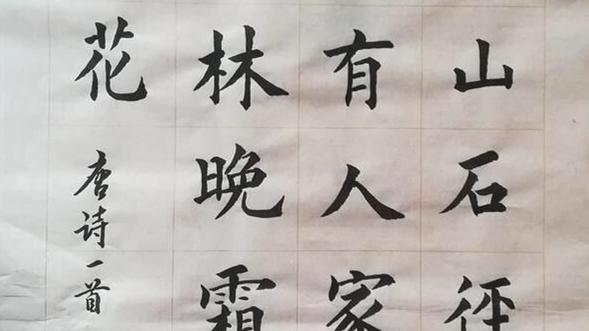 山石径
有人家
林晚霜
花
唐诗一首